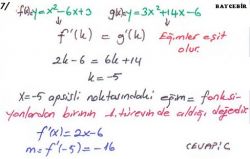 7/ f(x)=y=x²-6x+3 g(x)=y=3x²+14x-6 BAYCEBİR
f'(k) = g'(k) Eğimler eşit
olur.
2k-6 = 6k+14
k=-5
x=-5 apsisli noktasındaki eğim = fonksi-
yonlardan birinin 1. türevinde aldığı değerdir.
f'(x)=2x-6
m=f'(-5)=-16 CEVAP: C